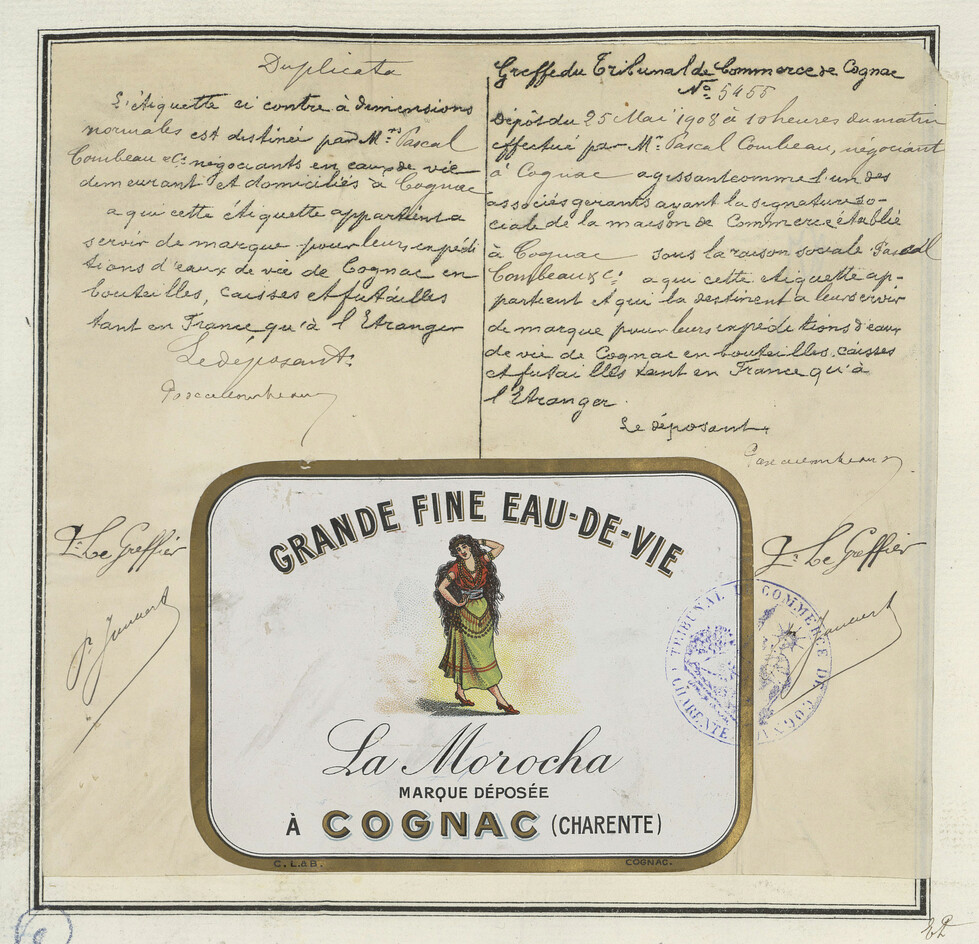 Duplicata
L'étiquette ci contre à dimensions
normales est destinée par Mrs Pascal
Combeau & Ce négociants en eaux de vie
demeurant et domiciliés à Cognac
a qui cette étiquette appartient a
servir de marque pour leurs expédi
tions d'eaux de vie de Cognac en
bouteilles, caisses et futailles
tant en France qu'à l'Etranger
Le déposant.
Pascalcombeau
Greffe du Tribunal de Commerce de Cognac
No 5455
Dépôt du 25 Mai 1908 à 10 heures du matin
effectué par Mr Pascal Combeau, négociant
à Cognac agissant comme l'un des
associés gerants ayant la signature so-
ciale de la maison de Commerce établie
à Cognac sous la raison sociale Pascal
Combeau & Ce a qui cette étiquette ap-
partient et qui la destinent a leur servir
de marque pour leurs expéditions d'eaux
de vie de Cognac en bouteilles, caisses
et futailles tant en France qu'à
l'Etranger.
Le déposant.
Pascalcombeau
Pr Le Greffier
Pr Le Greffier
GRANDE FINE EAU-DE-VIE
La Morocha
MARQUE DÉPOSÉE
À COGNAC (CHARENTE)
C. L. & B.
COGNAC.
TRIBUNAL DE COMMERCE DE COGNAC
CHARENTE